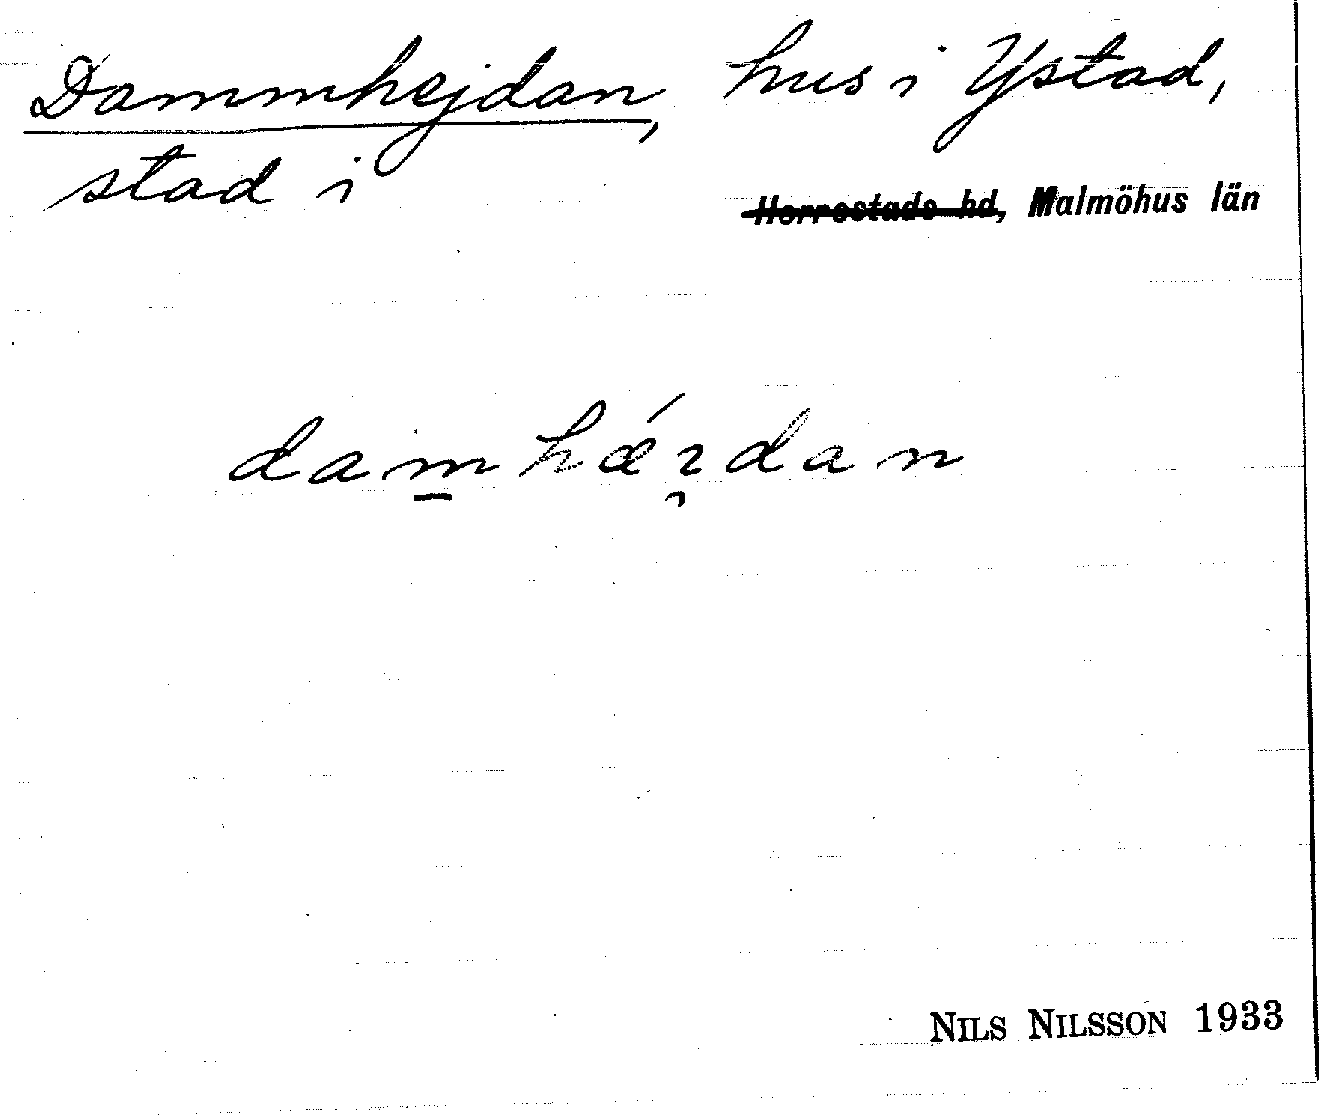 Dammhejdan, hus i Ystad,
stad i
Herrestads hd, Malmöhus län
damhǽɿdan
NILS NILSSON 1933